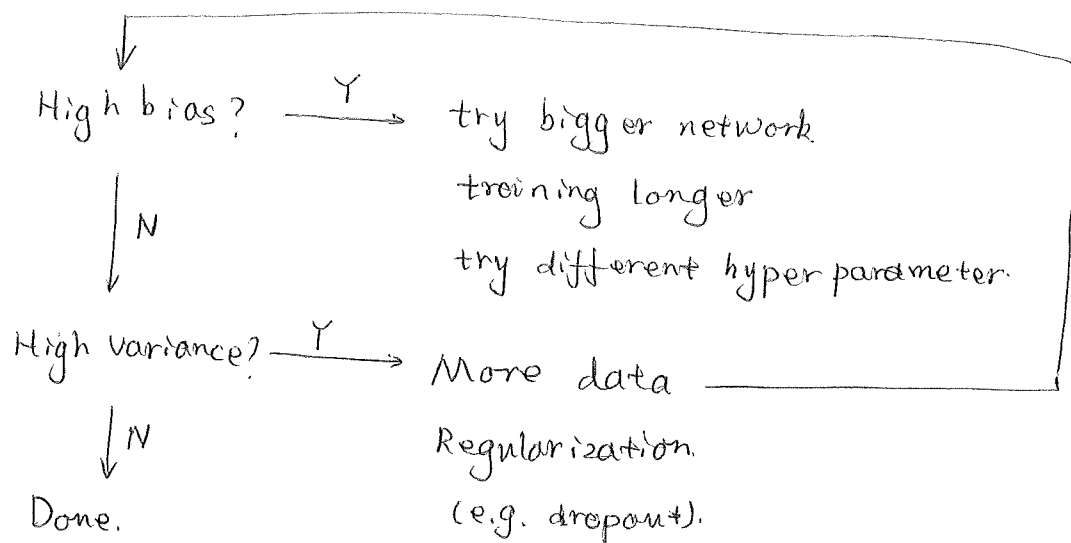 High bias? Y try bigger network
training longer
N
try different hyper parameter.
High variance? Y More data
N Regularization.
Done. (e.g. dropout).